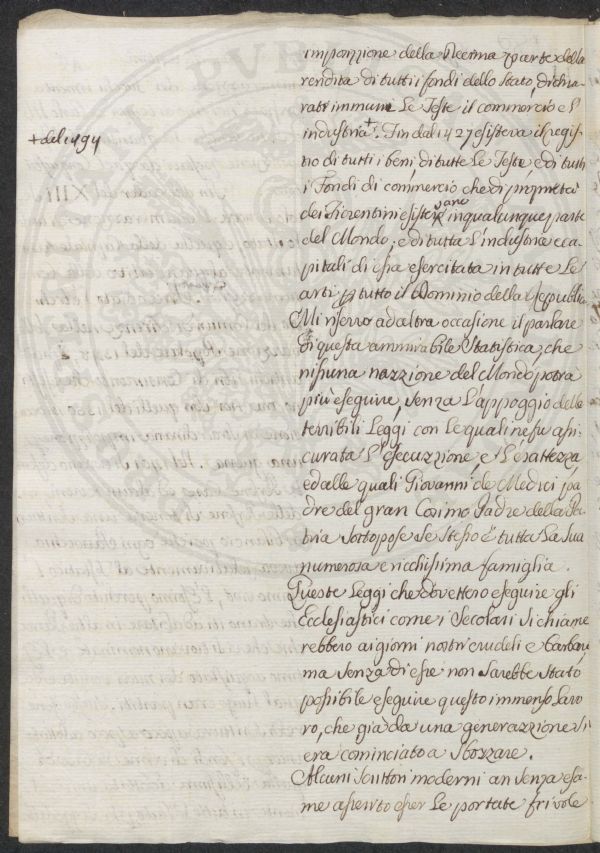 imposizione della Decima parte della
rendita di tutti i fondi dello Stato, dichia-
rati immuni Le Teste il commercio e l'
+ del 1494
industria+. Fin dal 1427 esisteva il regis-
tro di tutti i beni, di tutte Le Teste, e di tutti
i Fondi di commercio che di proprietà
dei Fiorentini esistevano in qualunque parte
del Mondo, e di tutta L'industria e ca-
pitali di essa esercitata in tutte Le
arti p tutto il Dominio della Repubblica
Mi riservo ad altra occasione il parlare
di questa ammirabile Statistica, che
nissuna nazzione del Mondo potrà
più eseguire, senza L'appoggio delle
terribili Leggi con Le quali ne fu assi-
curata L'esecuzzione, e L'esattezza
ed alle quali Giovanni de Medici pa-
dre del gran Cosimo Padre della Pa-
tria Sottopose Se Stesso e tutta La Sua
numerosa e ricchissima famiglia.
Queste Leggi che dovettero eseguire gli
Ecclesiastici come i Secolari Si chiame
rebbero ai giorni nostri crudeli e barbari
ma Senza di esse non Sarebbe Stato
possibile eseguire questo immenso Lavo
ro, che già da una generazzione Si
era cominciato a Sbozzare.
Alcuni Scrittori moderni an Senza esa-
me asserito esser Le portate frivole